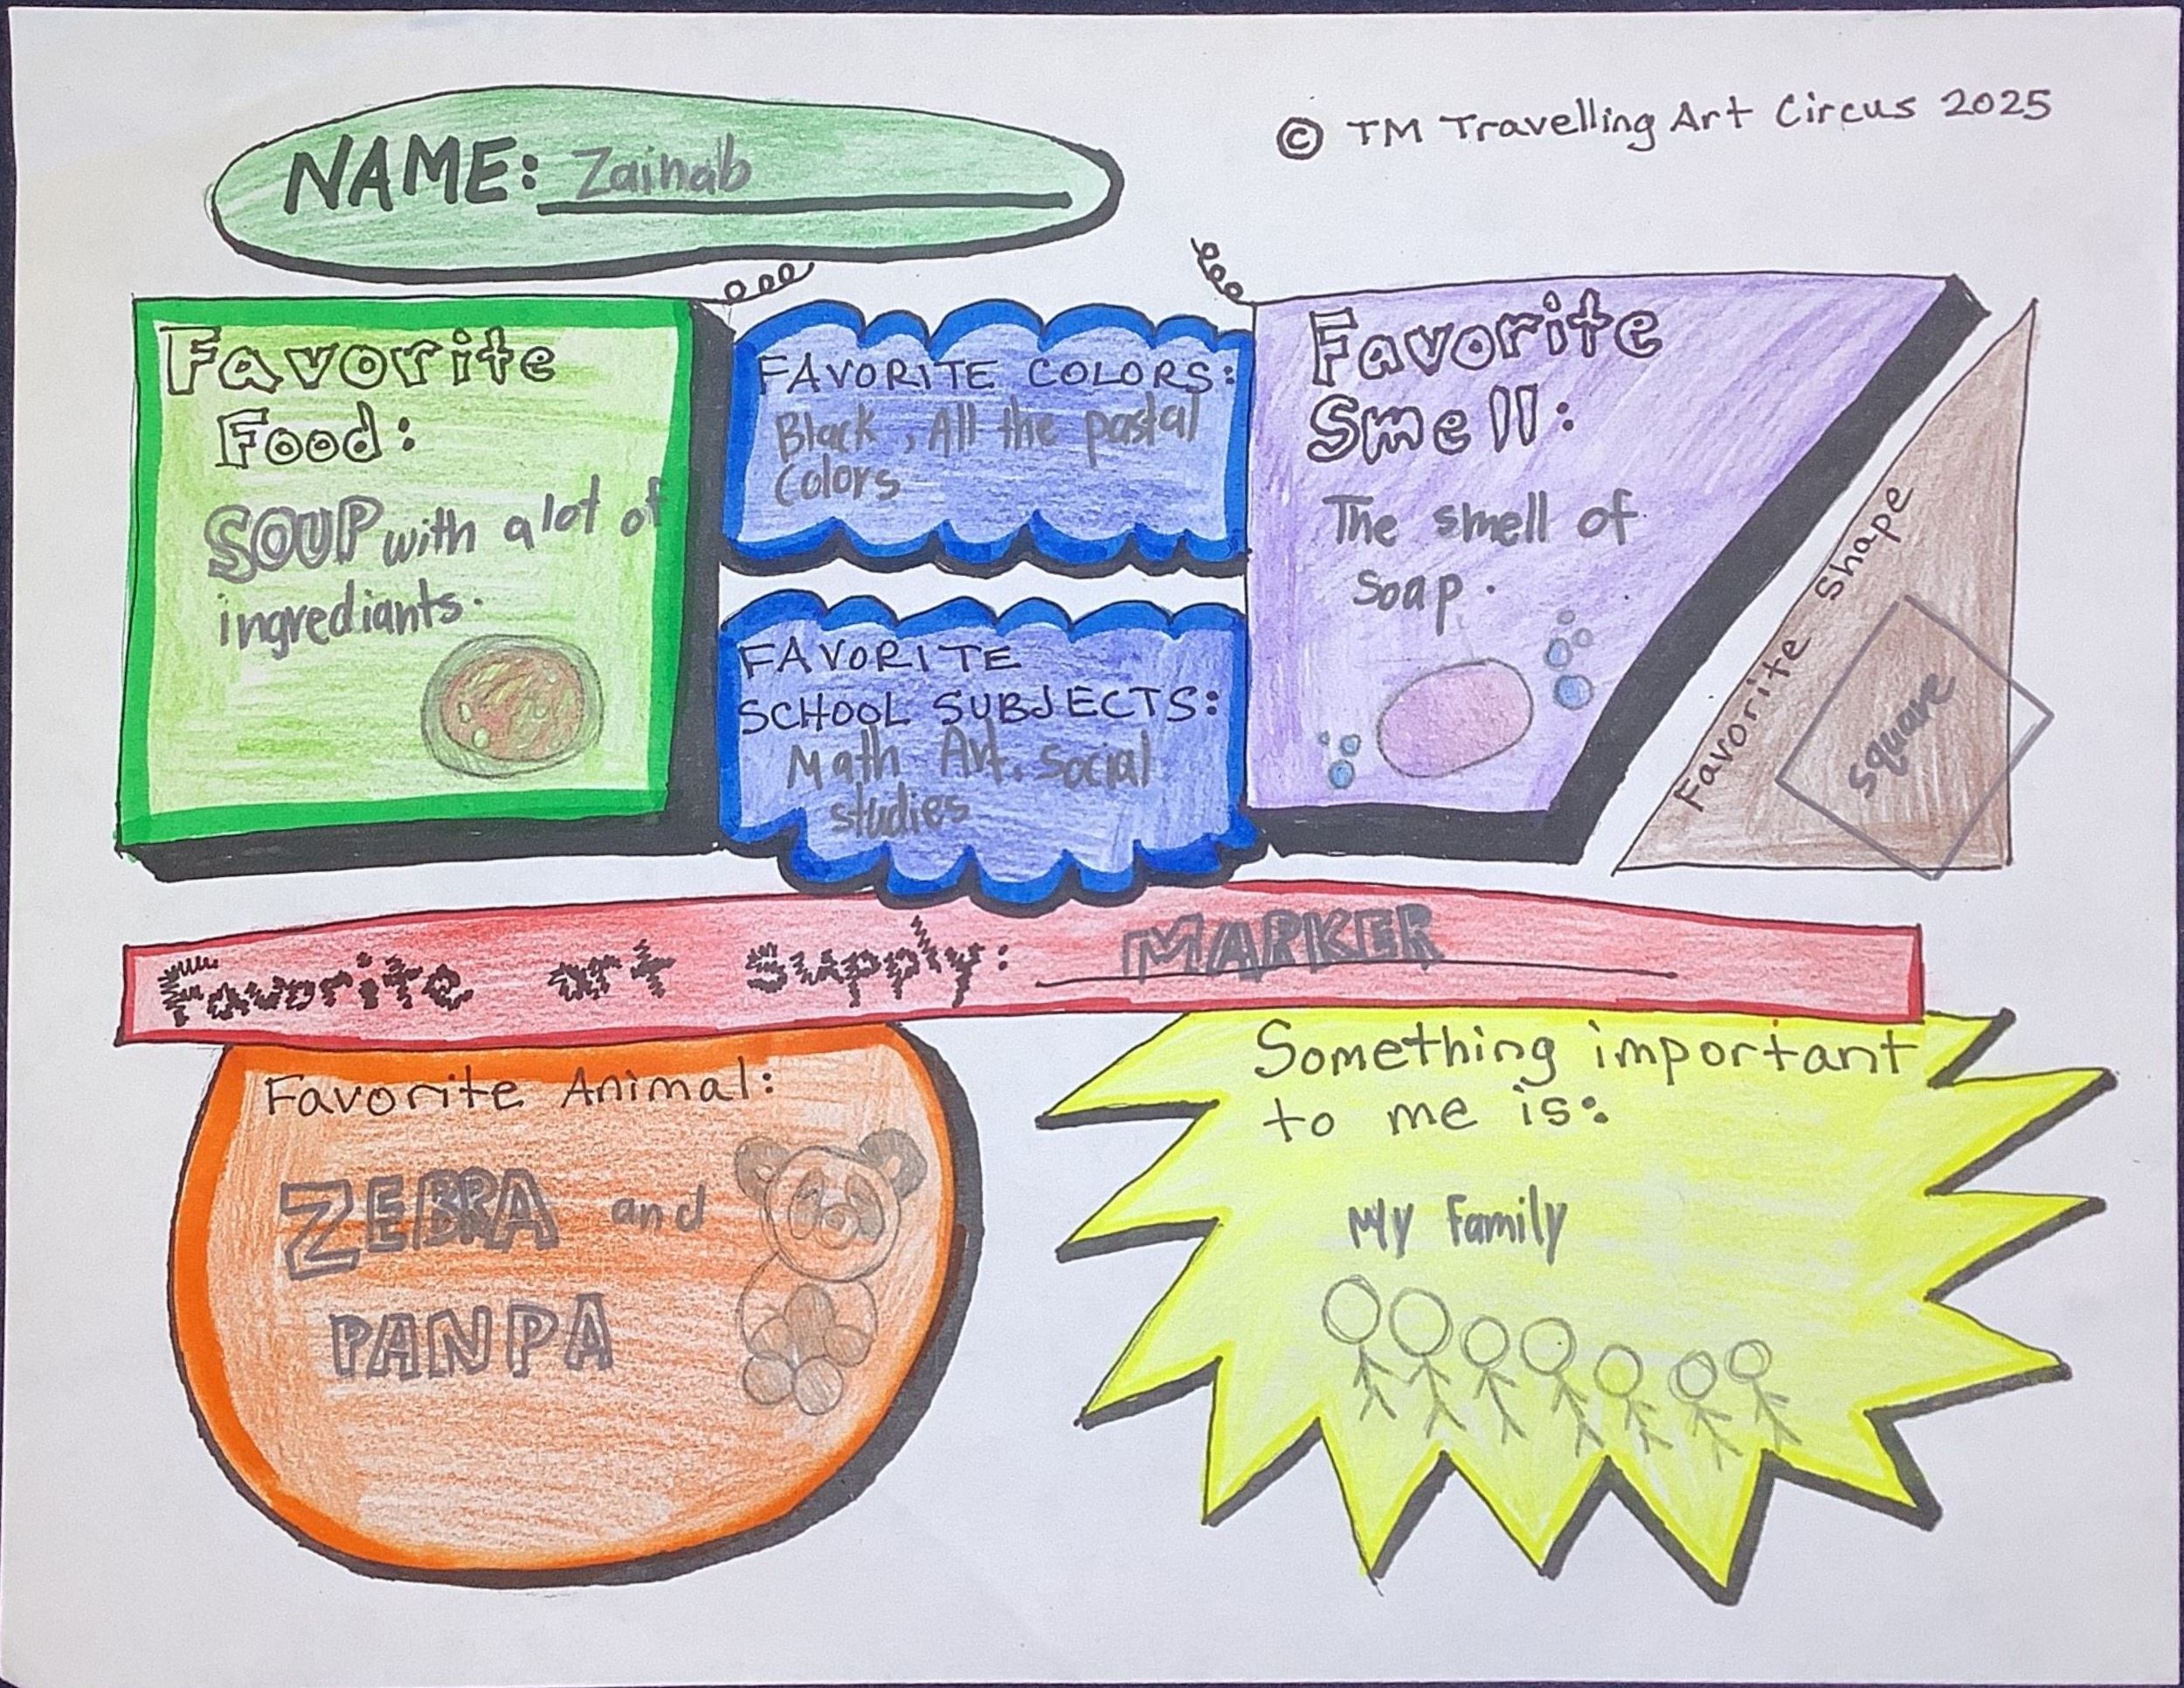 NAME: Zainab
© TM Travelling Art Circus 2025
Favorite
Food:
SOUP with a lot of
ingrediants.
FAVORITE COLORS:
Black, All the pastal
Colors
FAVORITE
SCHOOL SUBJECTS:
Math Art, social
studies
Favorite
Smell:
The smell of
soap.
Favorite Shape
square
Favorite art Supply: MARKER
Favorite Animal:
ZEBRA and
PANPA
Something important
to me is:
My Family